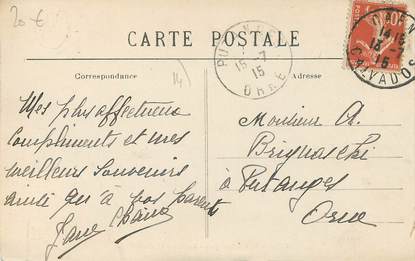 20 €
CARTE POSTALE
Correspondance
Adresse
14
15 -7
15
ORNE
CAEN
14 15
13 -7
15
CALVADOS
10
Mes plus affectueux
compliments et mes
meilleurs souvenirs
ainsi qu'à vos parents
Jane
Monsieur A.
à Putanges
Orne